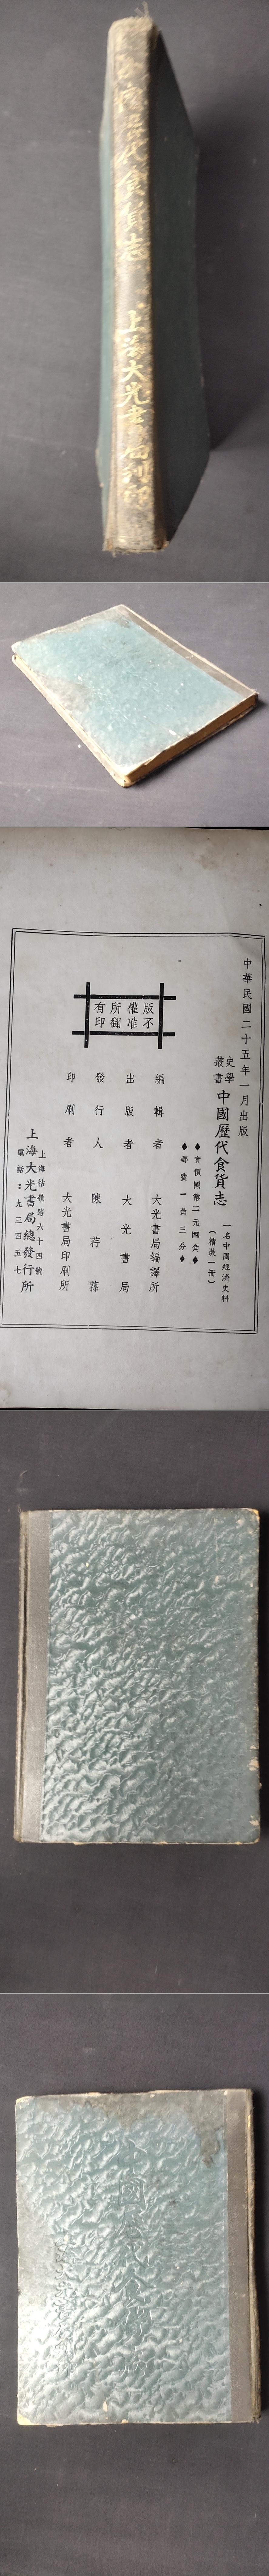 中國歷代食貨志
上海大光書局刊行
中華民國二十五年一月出版
史學叢書
中國歷代食貨志
一名中國經濟史料
(精裝一冊)
◆實價國幣二元四角◆
◆郵費一角三分◆
版權所有
不准翻印
編輯者 大光書局編譯所
出版者 大光書局
發行人 陳荇蓀
印刷者 大光書局印刷所
上海大光書局總發行所
上海牯嶺路六十四號
電話:九三四五七